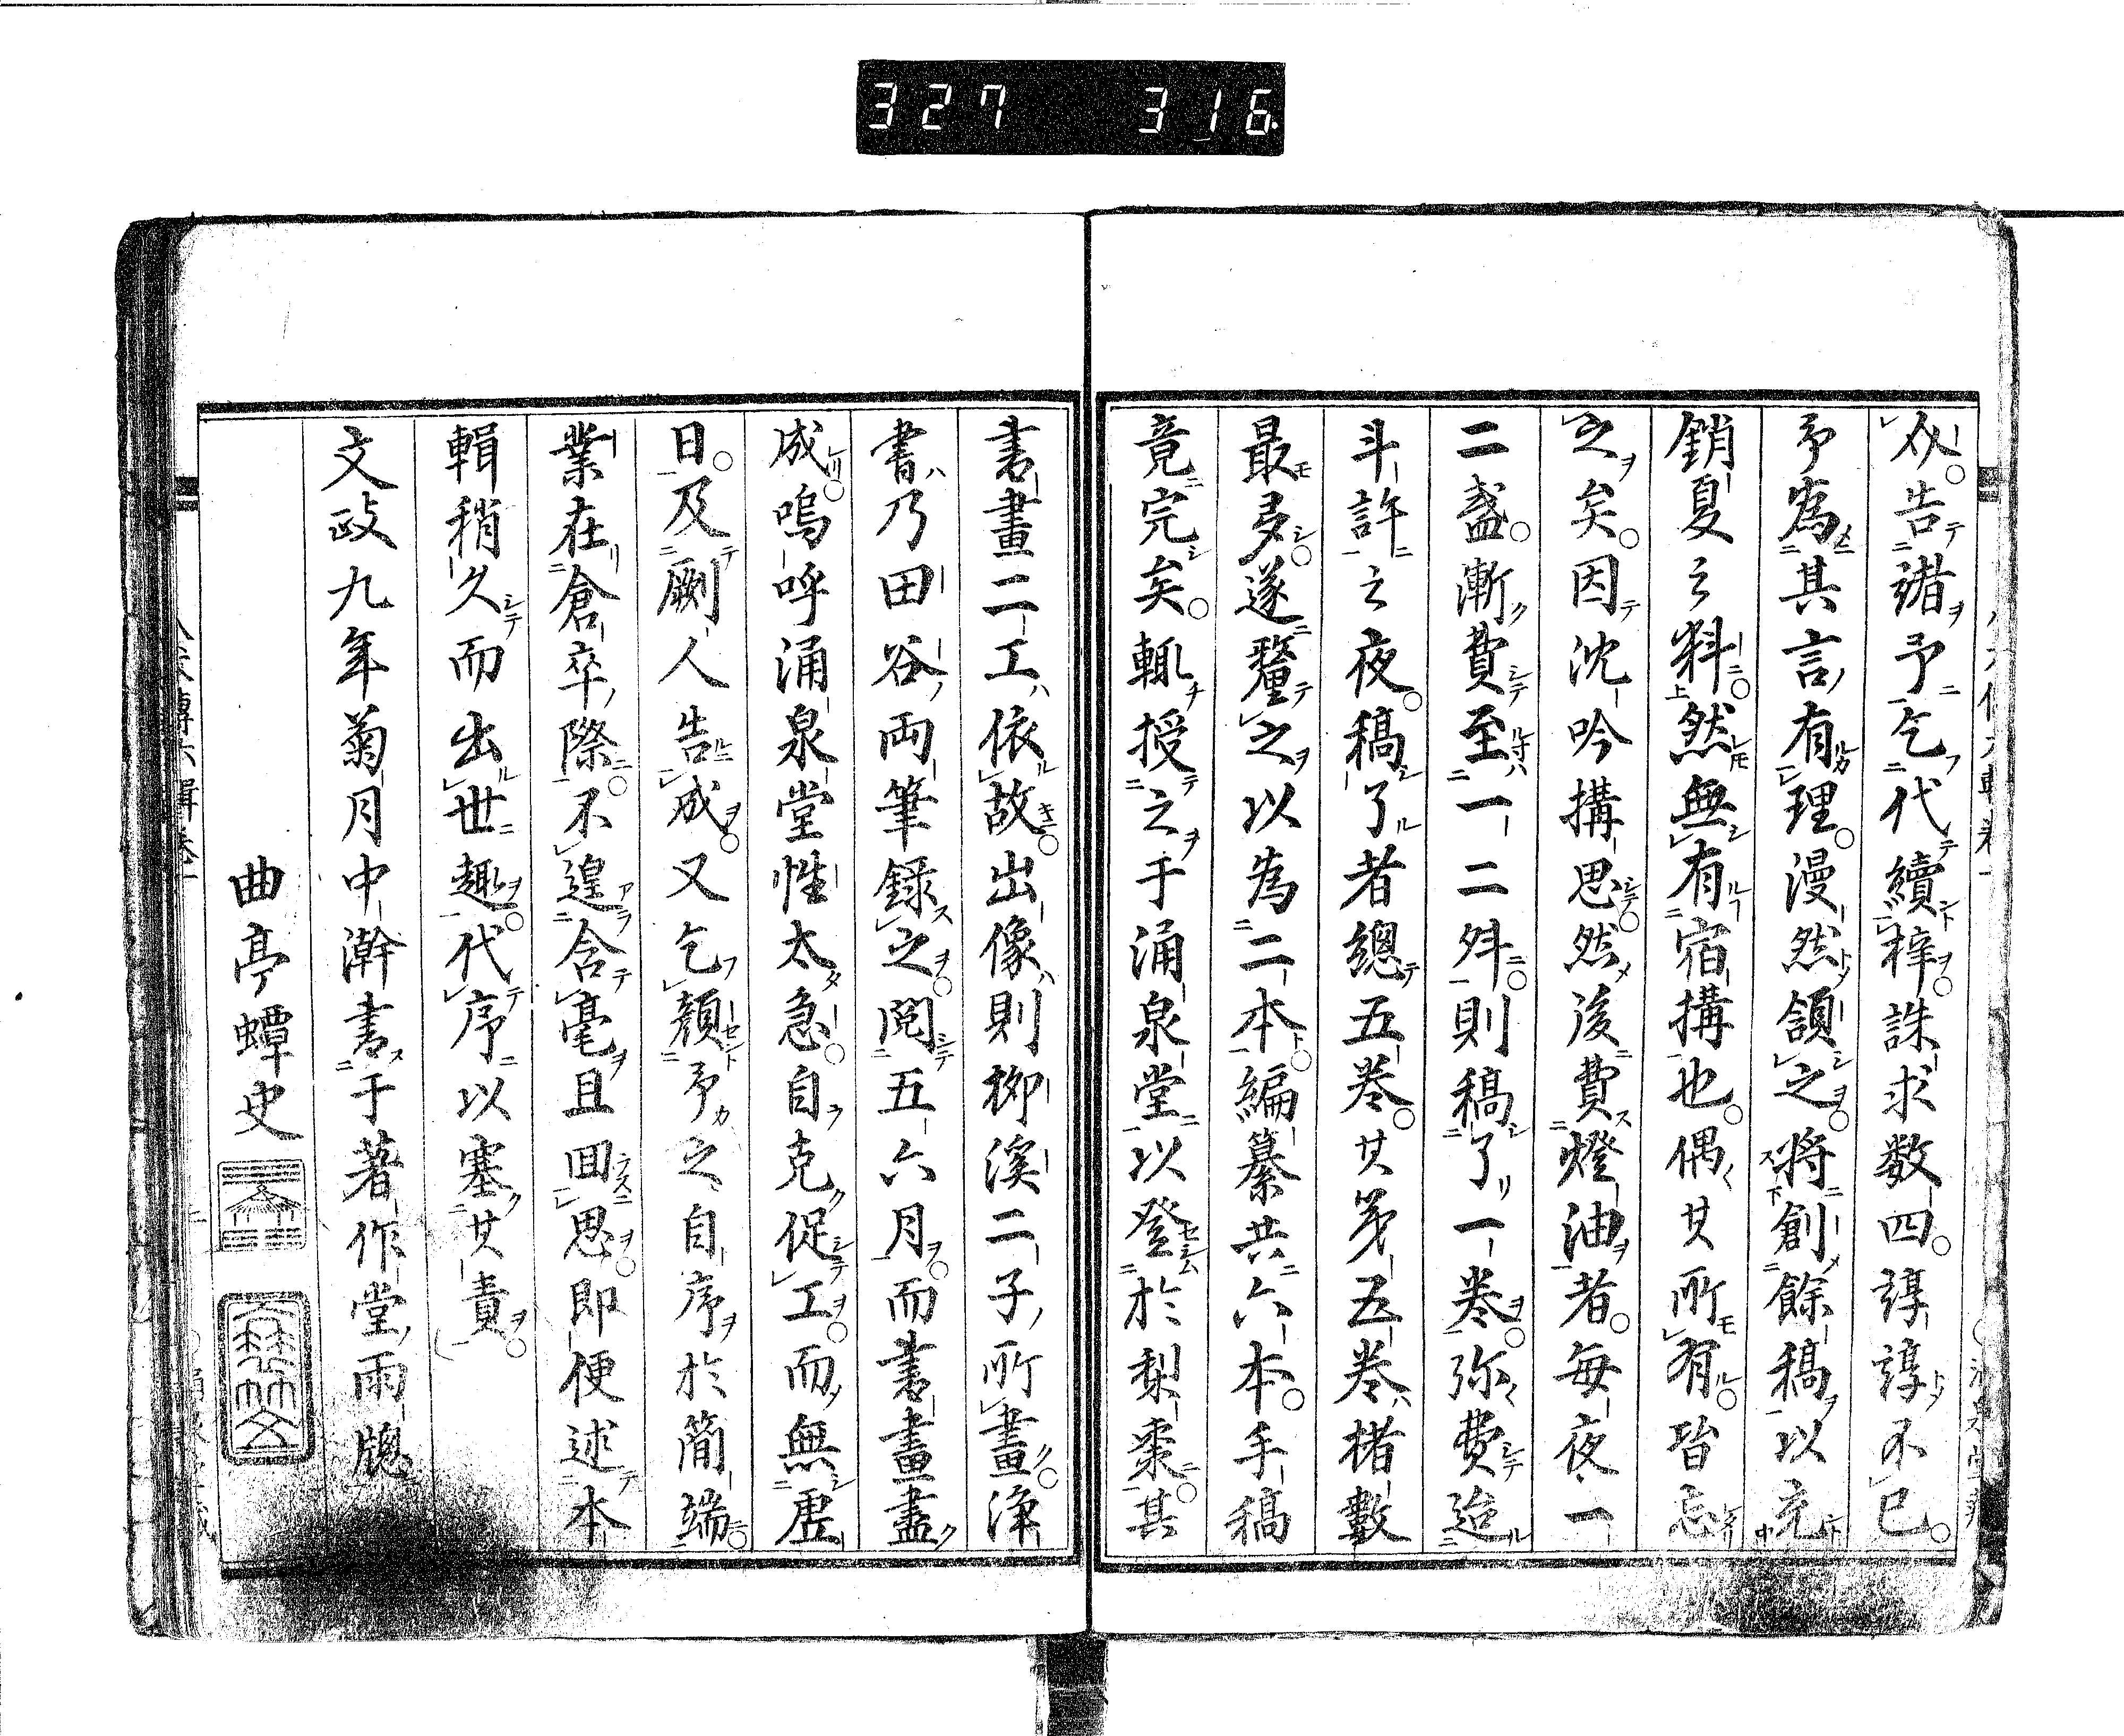 327 316
从告諸予乞代續梓誅求数四諄諄不已
予為其言有理漫然頷之將創餘稿以充
銷夏之料然無有宿搆也偶其所有皆忘
之矣因沈吟搆思然後費燈油者每夜一
二盞漸費至一二舛則稿了一巻弥費迨
斗許之夜稿了者總五巻其第五巻楮數
最多遂釐之以為二本編纂共六本手稿
竟完矣輙授之于涌泉堂以登於梨棗其
書畫二工依故出像則栁溪二子所畫淨
書乃田谷両筆録之閲五六月而書畫盡
成嗚呼涌泉堂性太急自克促工而無虚
日及劂人告成又乞顔予之自序於簡端
業在倉卒際不遑含毫且回思即便述本
輯稍久而出世趣代序以塞其責
文政九年菊月中澣書于著作堂雨牕
曲亭蟫史